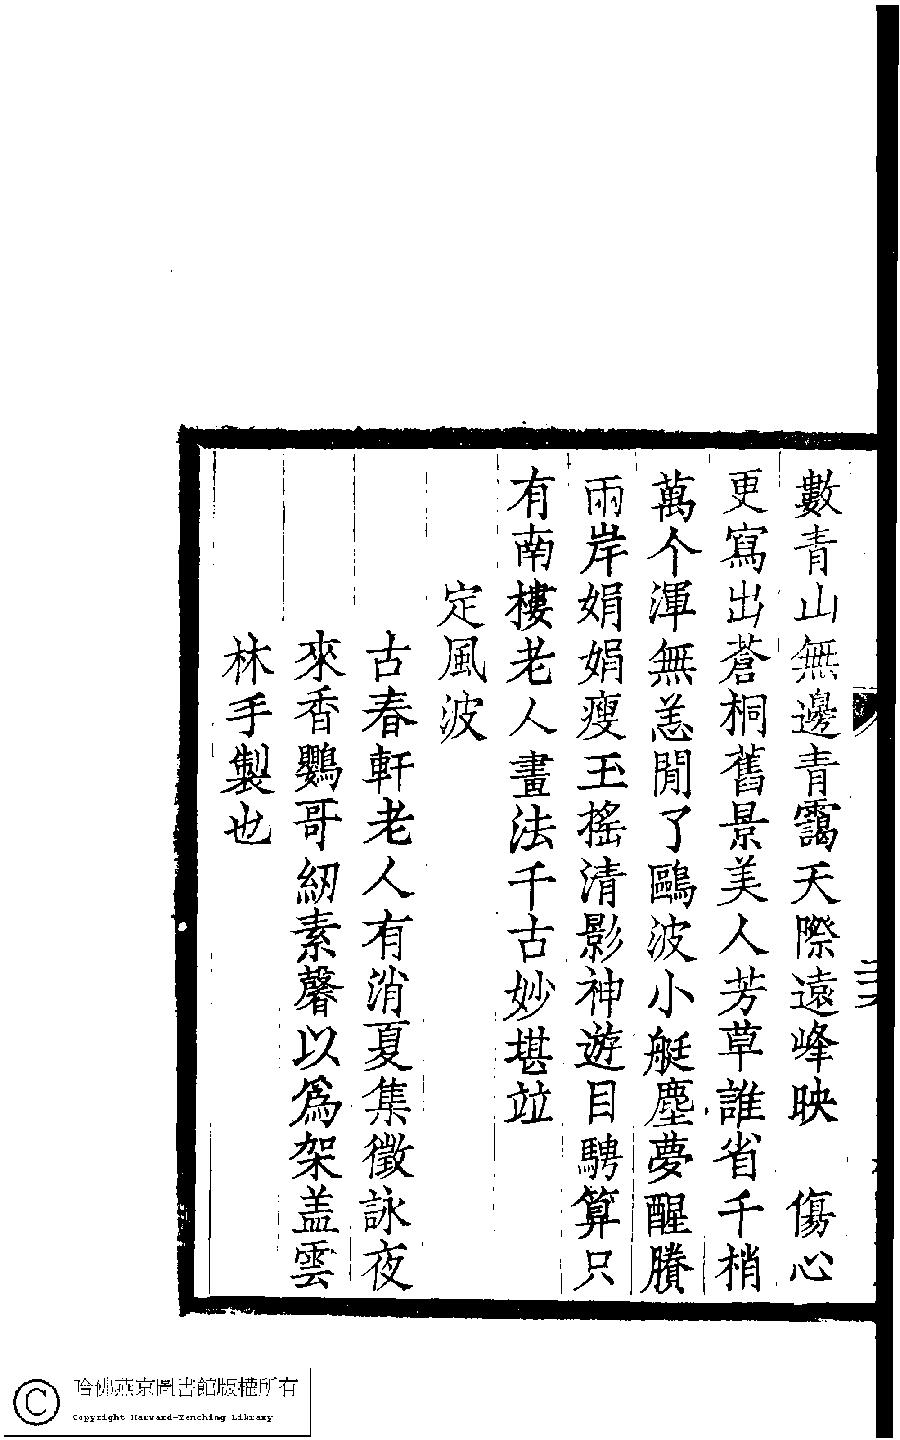 數青山無邊青靄天際遠峰映　傷心
更寫出蒼桐舊景美人芳草誰省千梢
萬个渾無恙閒了鷗波小艇塵夢醒賸
兩岸娟娟瘦玉搖清影神遊目騁算只
有南樓老人畫法千古妙堪竝
定風波
古春軒老人有消夏集徵詠夜
來香鸚哥紉素馨以爲架盖雲
林手製也
哈佛燕京圖書館版權所有
Copyright Harvard-Yenching Library